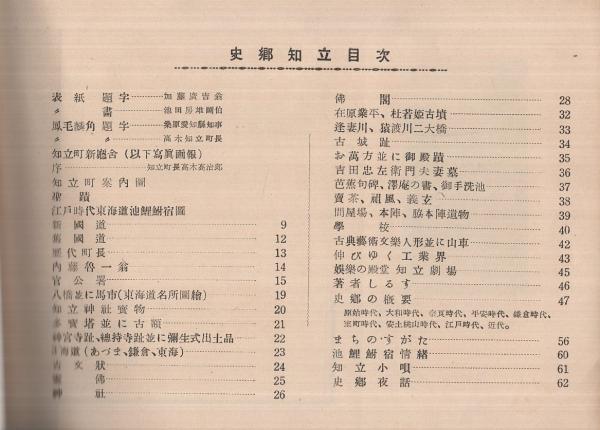 史郷知立目次
表紙題字 加藤廣吉翁
〃 畵 池田房雄画伯
鳳毛麟角題字 桑原愛知縣知事
〃 〃 高木知立町長
知立町新廳舎(以下寫眞画報)
序 知立町長高木英治郎
知立町案内圖
聖蹟
江戸時代東海道池鯉鮒宿圖
新國道 9
舊國道 12
歴代町長 13
内藤魯一翁 14
官公署 15
八橋並に馬市(東海道名所圖繪) 19
知立神社寳物 20
多寳塔並に古額 21
神宮寺趾、總持寺趾並に彌生式出土品 22
海道(あづま、鎌倉、東海) 23
古文狀 24
佛 25
神社 26
佛閣 28
在原業平、杜若姫古墳 32
逢妻川、猿渡川二大橋 33
古城趾 34
お萬方並に御殿蹟 35
吉田忠左衛門夫妻墓 36
芭蕉句碑、澤庵の書、御手洗池 37
賣茶、祖風、義玄 38
問屋場、本陣、脇本陣遺物 39
學校 40
古典藝術文樂人形並に山車 42
伸びゆく工業界 43
娯樂の殿堂知立劇場 45
著者しるす 46
史郷の概要 47
原始時代、大和時代、奈良時代、平安時代、鎌倉時代、
室町時代、安土桃山時代、江戸時代、近代。
まちのすがた 56
池鯉鮒宿情緒 60
知立小唄 61
史郷夜話 62